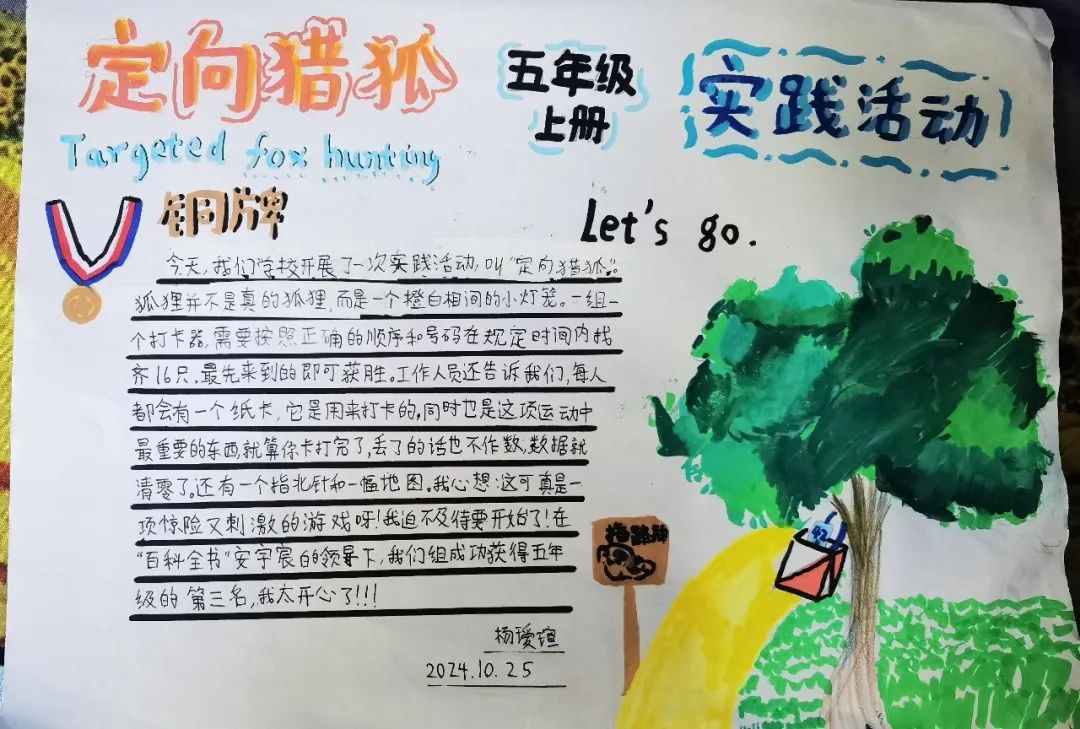 定向猎狐
五年级
上册
实践活动
Targeted fox hunting
铜牌
Let's go.
今天,我们学校开展了一次实践活动,叫"定向猎狐"。
狐狸并不是真的狐狸,而是一个橙白相间的小灯笼。一组一
个打卡器,需要按照正确的顺序和号码在规定时间内找
齐16只.最先来到的即可获胜。工作人员还告诉我们,每人
都会有一个纸卡,它是用来打卡的,同时也是这项运动中
最重要的东西就算你卡打完了,丢了的话也不作数,数据就
清零了。还有一个指北针和一幅地图。我心想:这可真是一
项惊险又刺激的游戏呀!我迫不及待要开始了!在
"百科全书"安宇宸的领导下,我们组成功获得五年
级的第三名,我太开心了!!!
杨瑷瑄
2024.10.25
指路牌
42